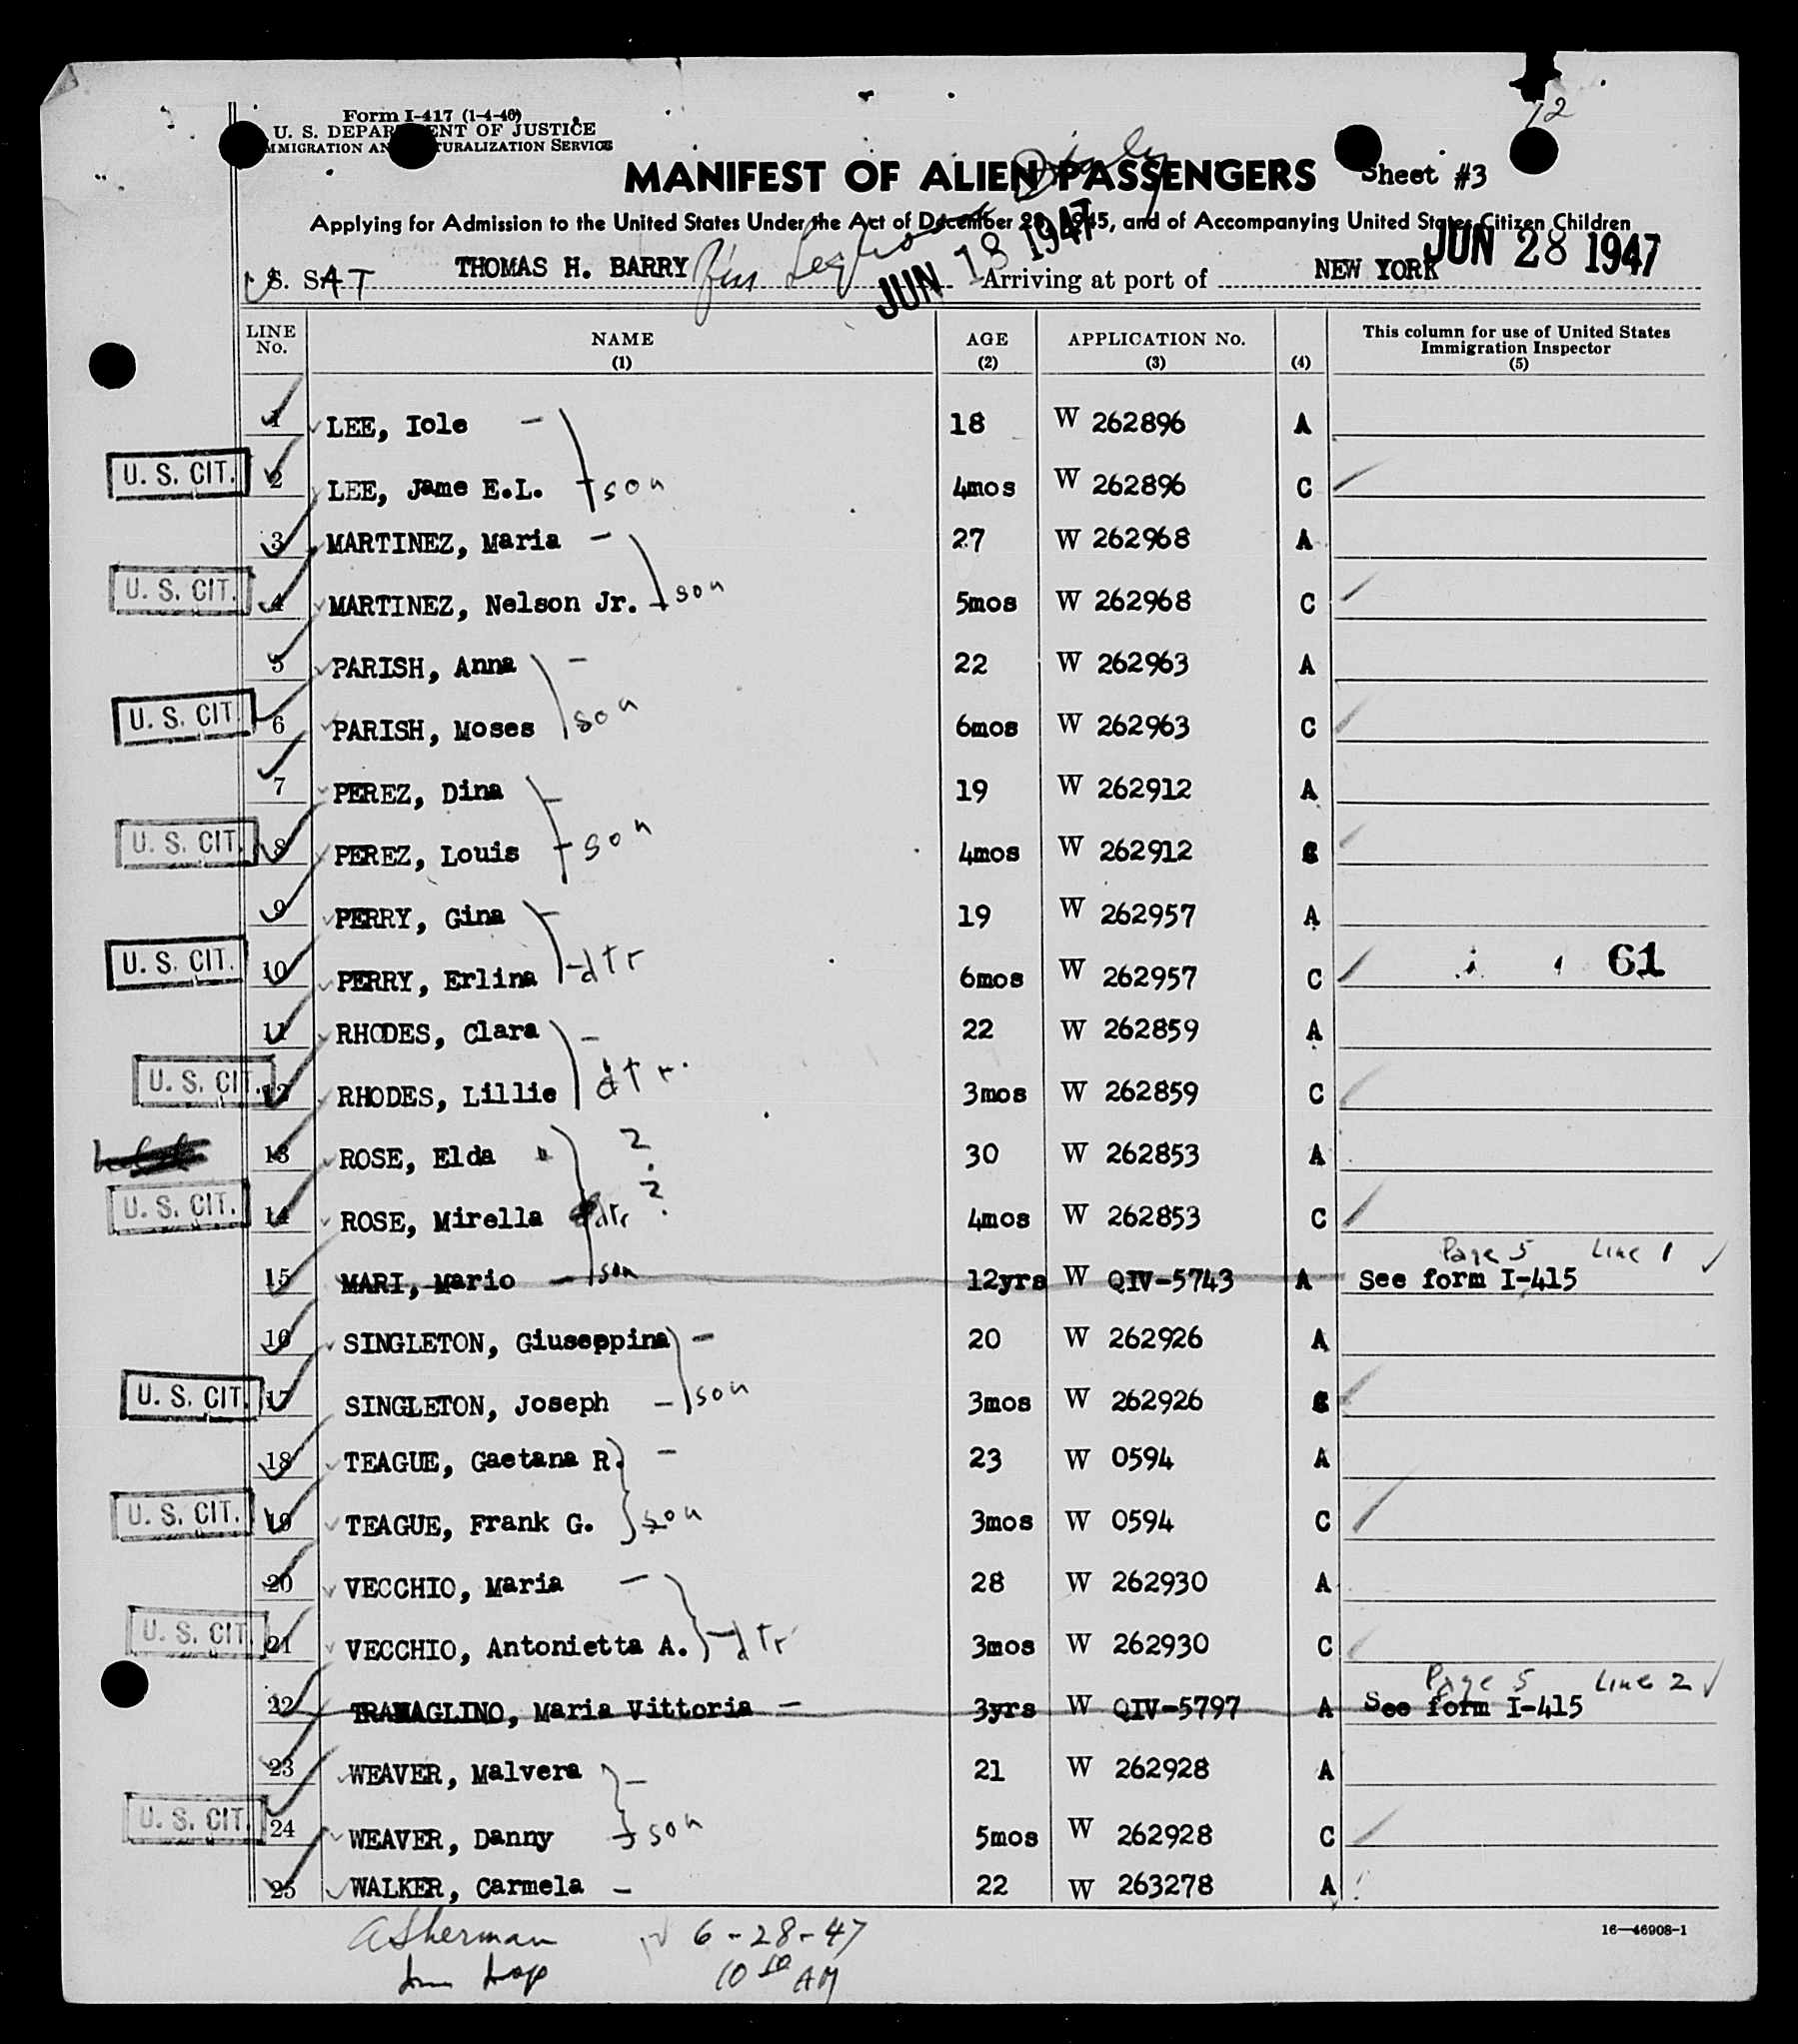 12
Form I-417 (1-4-46)
U. S. DEPAR ENT OF JUSTICE
MMIGRATION AN TURALIZATION SERVICE
MANIFEST OF ALIEN PASSENGERS Sheet #3
Applying for Admission to the United States Under the Act of December 28, 1945, and of Accompanying United States Citizen Children
S. SAT THOMAS H. BARRY JUN 18 1947 Arriving at port of NEW YORK JUN 28 1947
LINE No. NAME (1) AGE (2) APPLICATION No. (3) (4) This column for use of United States Immigration Inspector (5)
1 LEE, Iole - 18 W 262896 A
U. S. CIT. 2 LEE, Jame E.L. son 4mos W 262896 C
3 MARTINEZ, Maria - 27 W 262968 A
U. S. CIT. 4 MARTINEZ, Nelson Jr. - son 5mos W 262968 C
5 PARISH, Anna - 22 W 262963 A
U. S. CIT. 6 PARISH, Moses son 6mos W 262963 C
7 PEREZ, Dina - 19 W 262912 A
U. S. CIT. 8 PEREZ, Louis - son 4mos W 262912 C
9 PERRY, Gina - 19 W 262957 A
U. S. CIT. 10 PERRY, Erlina - dtr 6mos W 262957 C 61
11 RHODES, Clara - 22 W 262859 A
U. S. CIT. 12 RHODES, Lillie dtr. 3mos W 262859 C
13 ROSE, Elda ? 30 W 262853 A
U. S. CIT. 14 ROSE, Mirella dtr ? 4mos W 262853 C
Page 5 Line 1
15 MARI, Mario - son 12yrs W QIV-5743 A See form I-415
16 SINGLETON, Giuseppina - 20 W 262926 A
U. S. CIT. 17 SINGLETON, Joseph - son 3mos W 262926 C
18 TEAGUE, Gaetana R. - 23 W 0594 A
U. S. CIT. 19 TEAGUE, Frank G. son 3mos W 0594 C
20 VECCHIO, Maria - 28 W 262930 A
U. S. CIT. 21 VECCHIO, Antonietta A. - dtr 3mos W 262930 C
Page 5 Line 2
22 TRAMAGLINO, Maria Vittoria - 3yrs W QIV-5797 A See form I-415
23 WEAVER, Malvera - 21 W 262928 A
U. S. CIT. 24 WEAVER, Danny son 5mos W 262928 C
25 WALKER, Carmela - 22 W 263278 A
16—46908-1
A Sherman 6-28-47
Imm Insp 10 50 AM